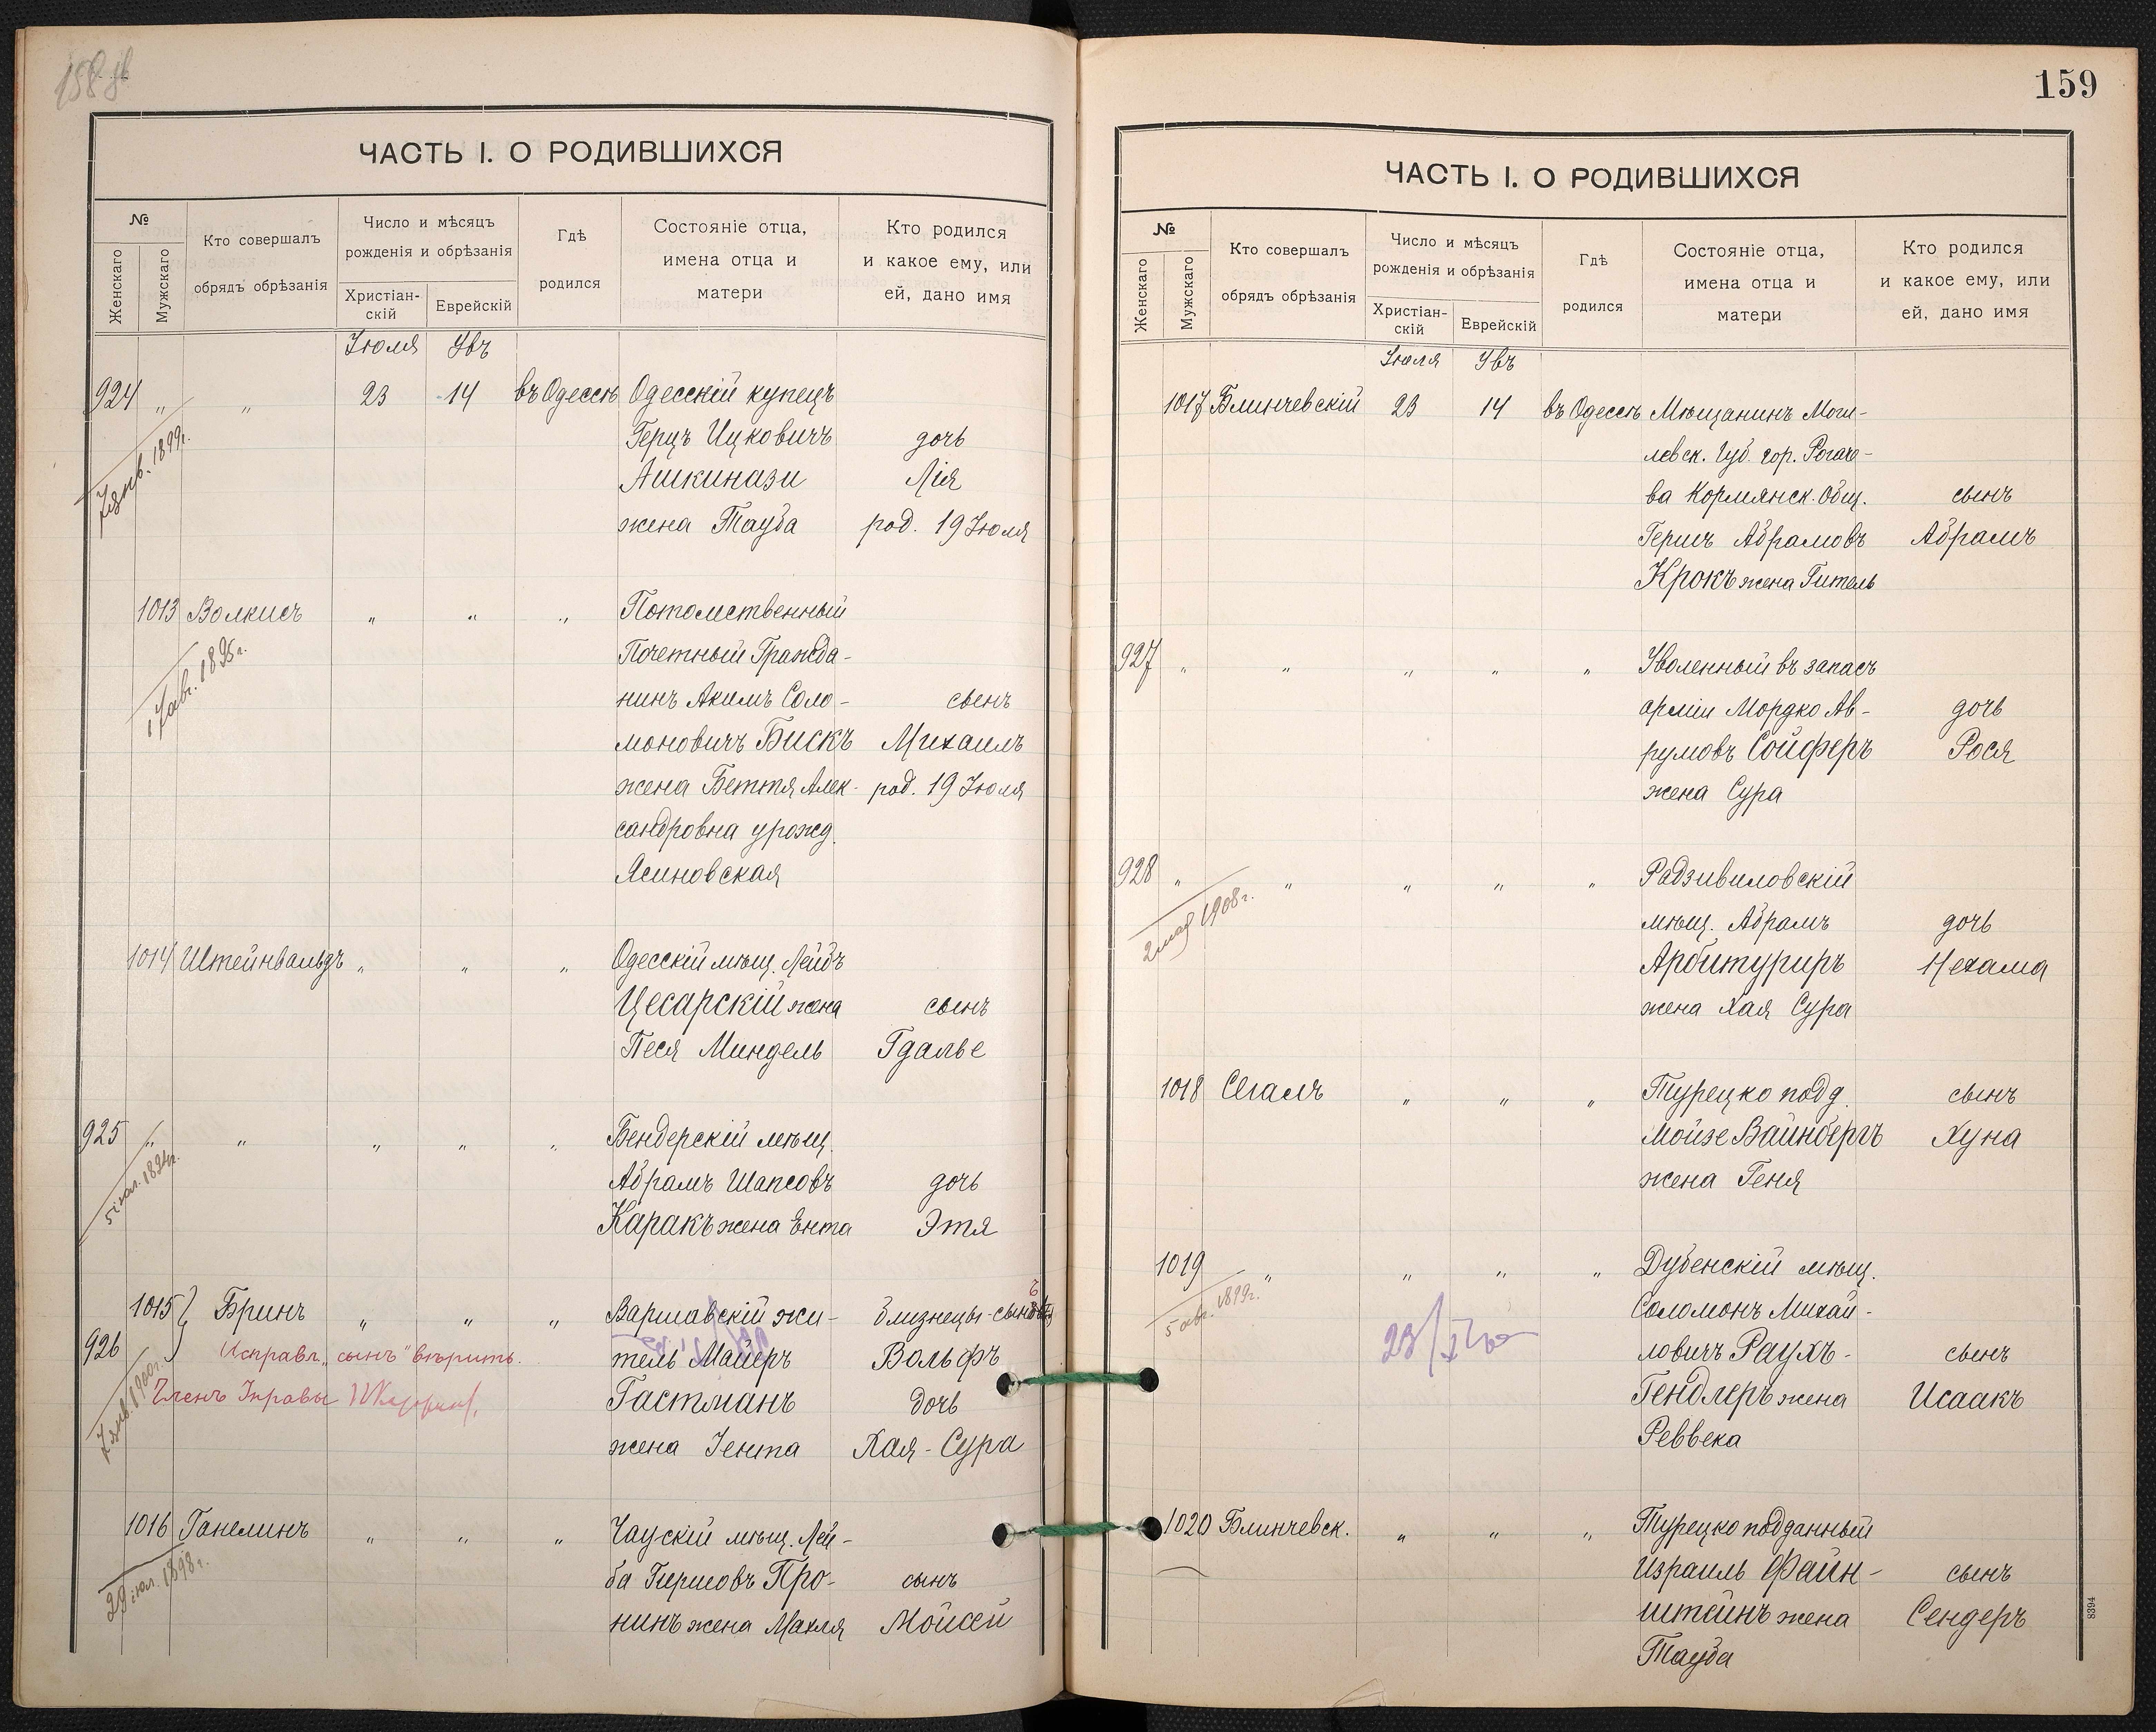 158 об
ЧАСТЬ I. О РОДИВШИХСЯ
№
Женскаго
Мужскаго
Кто совершалъ
обрядъ обрѣзанія
Число и мѣсяцъ
рожденія и обрѣзанія
Христіан-
скій
Еврейскій
Гдѣ
родился
Состояніе отца,
имена отца и
матери
Кто родился
и какое ему, или
ей, дано имя
Іюля Увъ
924 " " 23 14 въ Одессѣ Одесскій купецъ
Герцъ Ицковичъ дочь
7 янв. 1899г.
Ашкинази Лія
жена Тауба род. 19 Іюля
1013 Волкисъ " " " Потомственный
Почетный Гражда-
1895г.
нинъ Акимъ Соло- сынъ
моновичъ Бискъ Михаилъ
жена Беття Алек- род. 19 Іюля
сандровна урожд.
Ясиновская
1014 Штейнвальдъ " " " Одесскій мѣщ. Лейбъ
Цесарскій жена сынъ
Песя Миндель Гдалье
925 " " " " " Бендерскій мѣщ.
Абрамъ Шапсовъ дочь
Каракъ жена Ента Этя
1015 Бринъ " " " Варшавскій жи- близнецы-сынъ
926 Исправл. „сынъ" вѣрить. тель Майеръ Вольфъ
Членъ Управы Гастманъ дочь
7 янв. 1900г.
жена Іента Хая-Сура
1016 Ганелинъ " " " Чаускій мѣщ. Лей-
29 іюл. 1898г.
ба Гиршовъ Про- сынъ
нинъ жена Махля Мойсей
159
ЧАСТЬ I. О РОДИВШИХСЯ
№
Женскаго
Мужскаго
Кто совершалъ
обрядъ обрѣзанія
Число и мѣсяцъ
рожденія и обрѣзанія
Христіан-
скій
Еврейскій
Гдѣ
родился
Состояніе отца,
имена отца и
матери
Кто родился
и какое ему, или
ей, дано имя
Іюля Увъ
1017 Блинчевскій 23 14 въ Одессѣ Мѣщанинъ Моги-
левск. Губ. гор. Рогаче-
ва Кормянск. Общ. сынъ
Гершъ Абрамовъ Абрамъ
Крокъ жена Гитель
927 " " " " " Уволенный въ запасъ
арміи Мордко Ав- дочь
румовъ Сойферъ Рося
жена Сура
928 " " " " " Радзивиловскій
2 мая 1908г.
мѣщ. Абрамъ дочь
Арбитуриръ Нехама
жена Хая Сура
1018 Сегалъ " " " Турецко подд. сынъ
Мойзе Вайнбергъ Хуна
жена Геня
1019 " " " " Дубенскій мѣщ.
5 авг. 1899г.
Соломонъ Михай-
ловичъ Раухъ- сынъ
Гендлеръ жена Исаакъ
Реввека
1020 Блинчевск. " " " Турецко подданный
Израиль Файн- сынъ
штейнъ жена Сендеръ
Тауба
8394